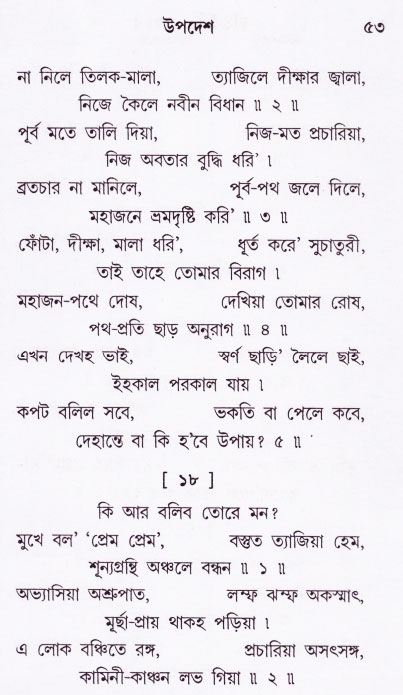 উপদেশ ৫৩
না নিলে তিলক-মালা, ত্যাজিলে দীক্ষার জ্বালা,
নিজে কৈলে নবীন বিধান ॥ ২ ॥
পূর্ব মতে তালি দিয়া, নিজ-মত প্রচারিয়া,
নিজ অবতার বুদ্ধি ধরি' ।
ব্রতচার না মানিলে, পূর্ব-পথ জলে দিলে,
মহাজনে ভ্রমদৃষ্টি করি' ॥ ৩ ॥
ফোঁটা, দীক্ষা, মালা ধরি', ধূর্ত করে' সুচাতুরী,
তাই তাহে তোমার বিরাগ ।
মহাজন-পথে দোষ, দেখিয়া তোমার রোষ,
পথ-প্রতি ছাড় অনুরাগ ॥ ৪ ॥
এখন দেখহ ভাই, স্বর্ণ ছাড়ি' লৈলে ছাই,
ইহকাল পরকাল যায় ।
কপট বলিল সবে, ভকতি বা পেলে কবে,
দেহান্তে বা কি হ'বে উপায়? ৫ ॥
[ ১৮ ]
কি আর বলিব তোরে মন?
মুখে বল' ‘প্রেম প্রেম’, বস্তুত ত্যাজিয়া হেম,
শূন্যগ্রন্থি অঞ্চলে বন্ধন ॥ ১ ॥
অভ্যাসিয়া অশ্রুপাত, লম্ফ ঝম্ফ অকস্মাৎ,
মূর্ছা-প্রায় থাকহ পড়িয়া ।
এ লোক বঞ্চিতে রঙ্গ, প্রচারিয়া অসৎসঙ্গ,
কামিনী-কাঞ্চন লভ গিয়া ॥ ২ ॥